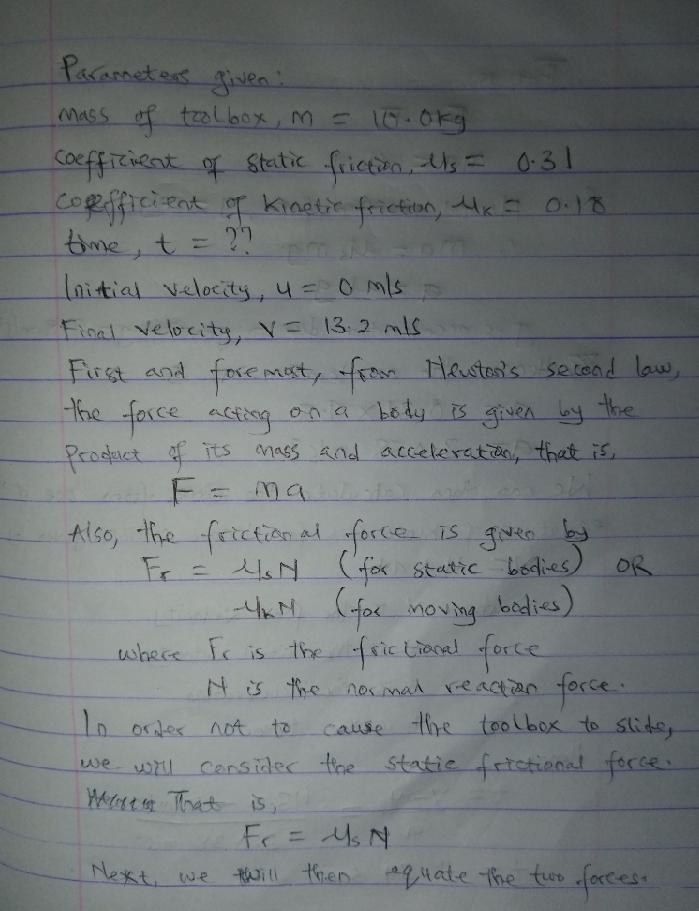 Parameters given:
Mass of toolbox, m = 10.0kg
Coefficient of static friction, μs = 0.31
Coefficient of kinetic friction, μk = 0.18
time, t = ??
Initial velocity, u = 0 m/s
Final velocity, v = 13.2 m/s
First and foremost, from Newton's second law,
the force acting on a body is given by the
product of its mass and acceleration, that is,
F = ma
Also, the frictional force is given by
Fr = μsN (for static bodies) OR
μkN (for moving bodies)
where Fr is the frictional force
N is the normal reaction force.
In order not to cause the toolbox to slide,
we will consider the static frictional force.
That is,
Fr = μsN
Next, we will then equate the two forces.